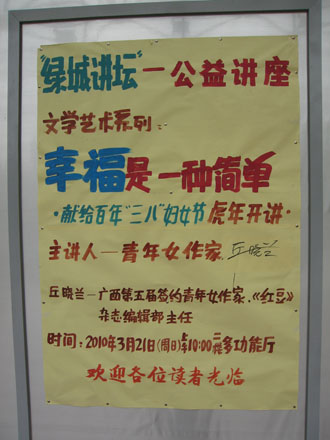 "绿城讲坛"—公益讲座
文学艺术系列:
幸福是一种简单
·献给百年"三八"妇女节 虎年开讲·
主讲人—青年女作家 丘晓兰
丘晓兰—广西第五届签约青年女作家,《红豆》
杂志编辑部主任
时间:2010年3月21日(周日)上午10:00二楼多功能厅
欢迎各位读者光临